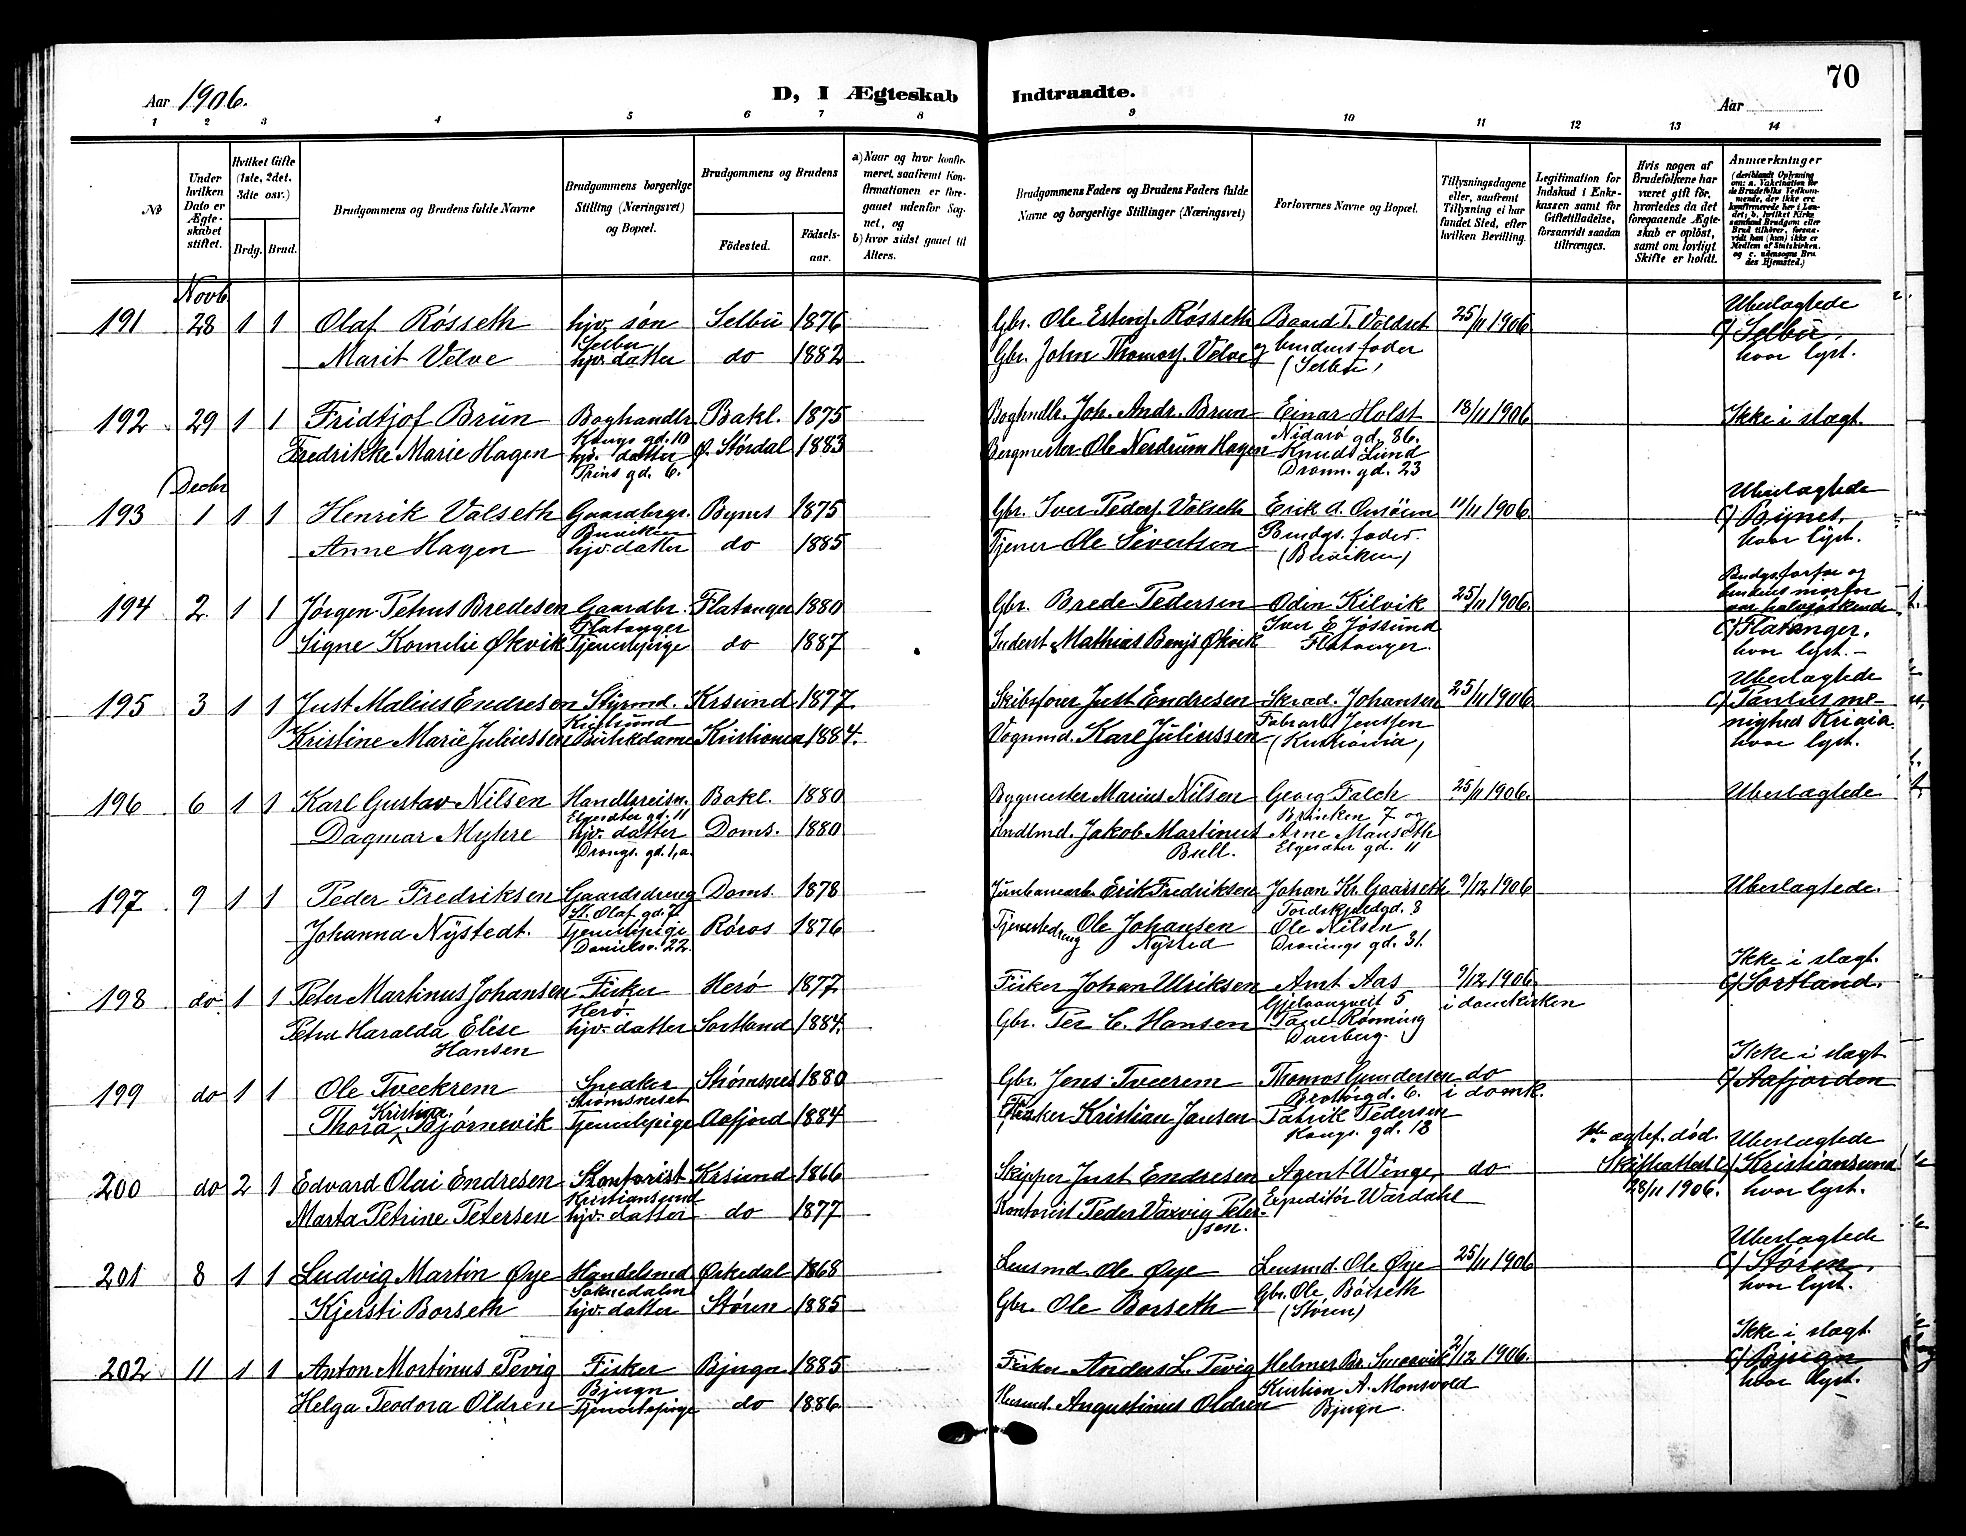 Aar 1906.
D, I Ægteskab Indtraadte.
70
Aar
1 2 3 4 5 6 7 8 9 10 11 12 13 14
No
Under hvilken Dato er Ægteskabet stiftet.
Hvilket Gifte (1ste, 2det, 3die osv.)
Brdg. Brud.
Brudgommens og Brudens fulde Navne
Brudgommens borgerlige Stilling (Næringsvei) og Bopæl.
Brudgommens og Brudens
Födested.
Födsels-aar.
a) Naar og hvor konfirmeret, saafremt Konfirmationen er foregaaet udenfor Sognet, og
b) hvor sidst gaaet til Alters.
Brudgommens Faders og Brudens Faders fulde Navne og borgerlige Stillinger (Næringsvei)
Forlovernes Navne og Bopæl.
Tillysningsdagene eller, saafremt Tillysning ei har fundet Sted, efter hvilken Bevilling.
Legitimation for Indskud i Enkekassen samt for Giftetilladelse, forsaavidt saadan tiltrænges.
Hvis nogen af Brudefolkene har været gift för, hvorledes da det foregaaende Ægteskab er oplöst, samt om lovligt Skifte er holdt.
Anmærkninger
(deriblandt Oplysning om: a. Vakcination for de Brudefolks Vedkommende, der ikke ere konfirmerede her i Landet; b. hvilket Kirkesamfund Brudgom eller Brud tilhörer, forsaavidt han (hun) ikke er Medlem af Statskirken, og c. udensogns Brudes Hjemsted.)
Novb.
191 28 1 1 Olaf Rösseth hjv. søn Selbu 1876 Gbr. Ole Estens. Rösseth Baard T. Voldset 25/11 1906. Ubeslægtede
Selbu
Marit Velve hjv. datter do 1882 Gbr. John Thomas. Velve og brudens fader
(Selbu)
c/ Selbu, hvor lyst.
192 29 1 1 Fridtjof Brun Boghandlr Bakl. 1875 Boghndlr. Joh. Andr. Brun Einar Holst 18/11 1906. Ikke i slægt.
Kongs gd. 10 Nidarö gd. 86.
Fredrikke Marie Hagen hjv. datter Ø. Stördal 1883 Bergmester Ole Nerdrum Hagen Knud Lund
Prins gd. 6. Dronn. gd. 23
Decbr
193 1 1 1 Henrik Valseth Gaardbrgr. Bynes 1875 Gbr. Iver Peders. Valseth 11/11 1906. Ubeslægtede
Buviken
Anne Hagen hjv. datter do 1885 Tjener Ole Sivertsen Brudgs. fader.
(Buviken)
c/ Bynes, hvor lyst.
194 2. 1 1 Jørgen Petrus Bredesen Gaardbr. Flatanger 1880 Gbr. Brede Pedersen Odin Kilvik 25/11 1906. Brudgs. farfar og brudens morfar var halvsøskende
Flatanger Iver E Jøssund
Signe Kornelie Økvik Tjenestepige do 1887 Inderst Mathias Benjs Økvik Flatanger.
c/ Flatanger, hvor lyst.
195 3 1 1 Just Malius Endresen Styrmd. Krsund 1877. Skibsfører Just Endresen Skræd. Johansen 25/11 1906. Ubeslægtede
Kristsund Fabrarb. Jenssen
Kristine Marie Juliussen Butikdame Kristiania 1884. Vognmd. Karl Juliussen (Kristiania)
c/ Paulus menighed Kriania. hvor lyst.
196 6 1 1 Karl Gustav Nilsen Handlsreisn. Bakl. 1880 Bygmester Marius Nilsen Georg Falch 25/11 1906. Ubeslægtede
Elgesæter gd. 11 Brinken 7 og
Dagmar Myhre hjv. datter Doms. 1880 Jakob Martinus Bull. Arne
Drongs. gd. 1, a. Elgesæter gd. 11
197 9 1 1 Peder Fredriksen Gaardsdreng Doms. 1878 Jernbanearb. Erik Fredriksen Johan Kr. Gaarseth 9/12 1906 Ubeslægtede.
St. Olaf gd. 7. Tordskjoldgd. 8
Johanna Nystedt. Tjenestepige Röros 1876 Tjenestedreng Ole Johansen Nysted Ole Nilsen
Danielsv. 22. Dronings gd. 31.
198 do 1 1 Peter Martinus Johansen Fisker Herö 1877 Fisker Johan Ulriksen Arnt Aas 9/12 1906. Ikke i slægt.
Herö. Gjelvangveit 5 i domkirken
Petra Haralda Elise Hansen hjv. datter Sortland 1884. Gbr. Per C. Hansen Paul Rönning
c/ Sortland.
199 do 1 1 Ole Tveekrem Snedker Strömsnes 1880 Gbr. Jens Tveerem Thomas Gundersen do Ikke i slægt
Strömsneset Brattörgd. 6. i domk.
Thora Kristina Bjørnevik Tjenestepige Aafjord 1884 Fisker Kristian Jansen Patrik Pedersen
Kongs. gd. 13
c/ Aafjorden
200 do 2 1 Edvard Olai Endresen Kontorist Krsund 1866 Skipper Just Endresen Agent Winge, do 1ste ægtef. död. Ubeslægtede
Kristiansund Skifteattest
Marta Petrine Petersen hjv. datter do 1877 Kontorist Peder Vaxvig Petersen. Expeditör Wærdahl 28/11 1906.
c/ Kristiansund hvor lyst.
201 8 1 1 Ludvig Martin Øye Handelsmd Orkedal 1868 Lensmd. Ole Øye Lensmd. Ole Øye 25/11 1906 Ubeslægtede
Soknedalen Gbr. Ole Börseth
Kjersti Borseth hjv. datter Støren 1885 Gbr. Ole Borseth (Støren)
c/ Støren, hvor lyst.
202 11 1 1 Anton Mortinus Tevig Fisker Bjugn 1885 Fisker Anders L. Tevig Helmer Br. 2/12 1906. Ikke i slægt.
Bjugn Kristian A. Monsvold
Helga Teodora Oldren Tjenestepige do 1886. Husmd. Augustinus Oldren Bjugn.
c/ Bjugn hvor lyst.